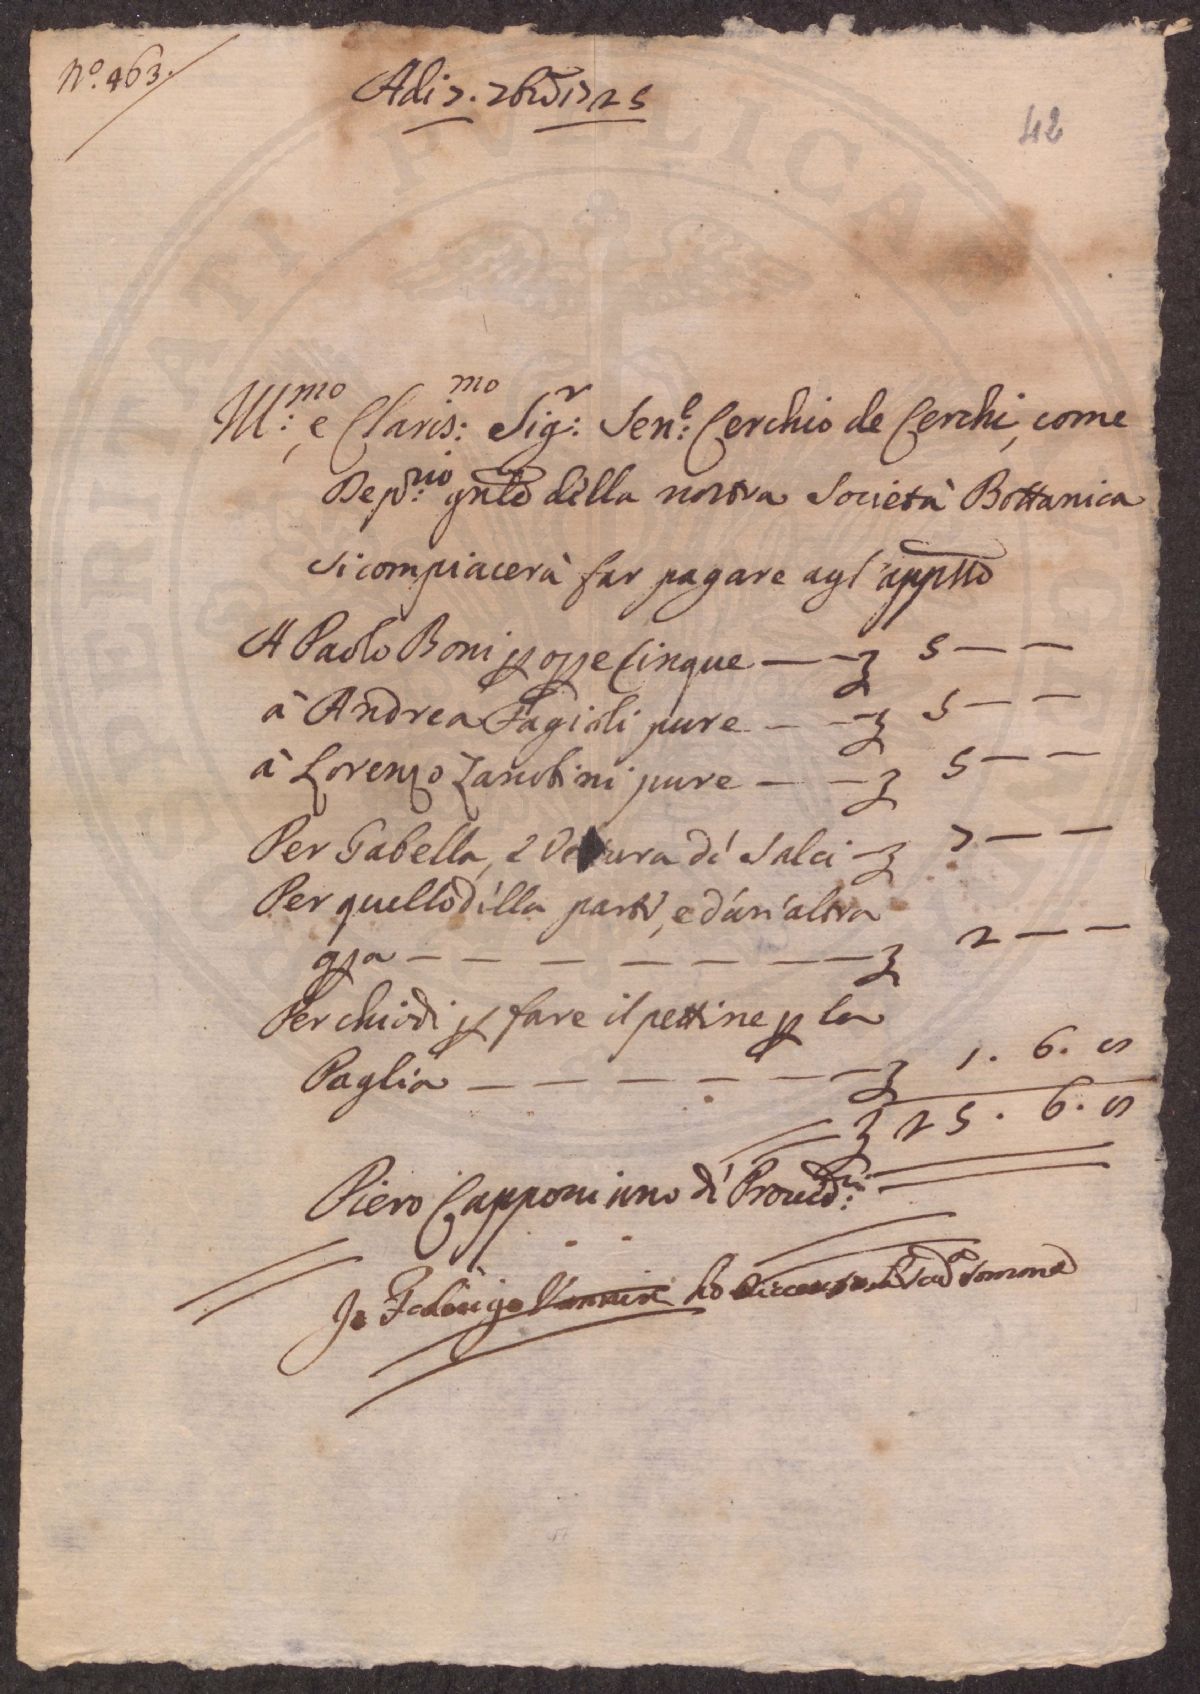 N.º 463.
Adi 7. 7bre 1725
42
Ill:mo, e Claris:mo Sig:r Sen:e Cerchio de Cerchi, come
Dep:rio gnle della nostra Società Bottanica
si compiacerà far pagare agl'appiè
A Paolo Boni p opre Cinque — — £ 5 — —
à Andrea Fagioli pure — — £ 5 — —
à Lorenzo Zanobini pure — — £ 5 — —
Per Gabella, e Vettura di Salci — £ 7 — —
Per quello della parti, e d'un'altra
opa — — — — — — — £ 2 — —
Per chiodi p fare il pettine p la
Paglia — — — — — — £ 1. 6. 8
£ 25. 6. 8
Piero Capponi uno di Proved:ri
Io Federigo Vannini ho somma